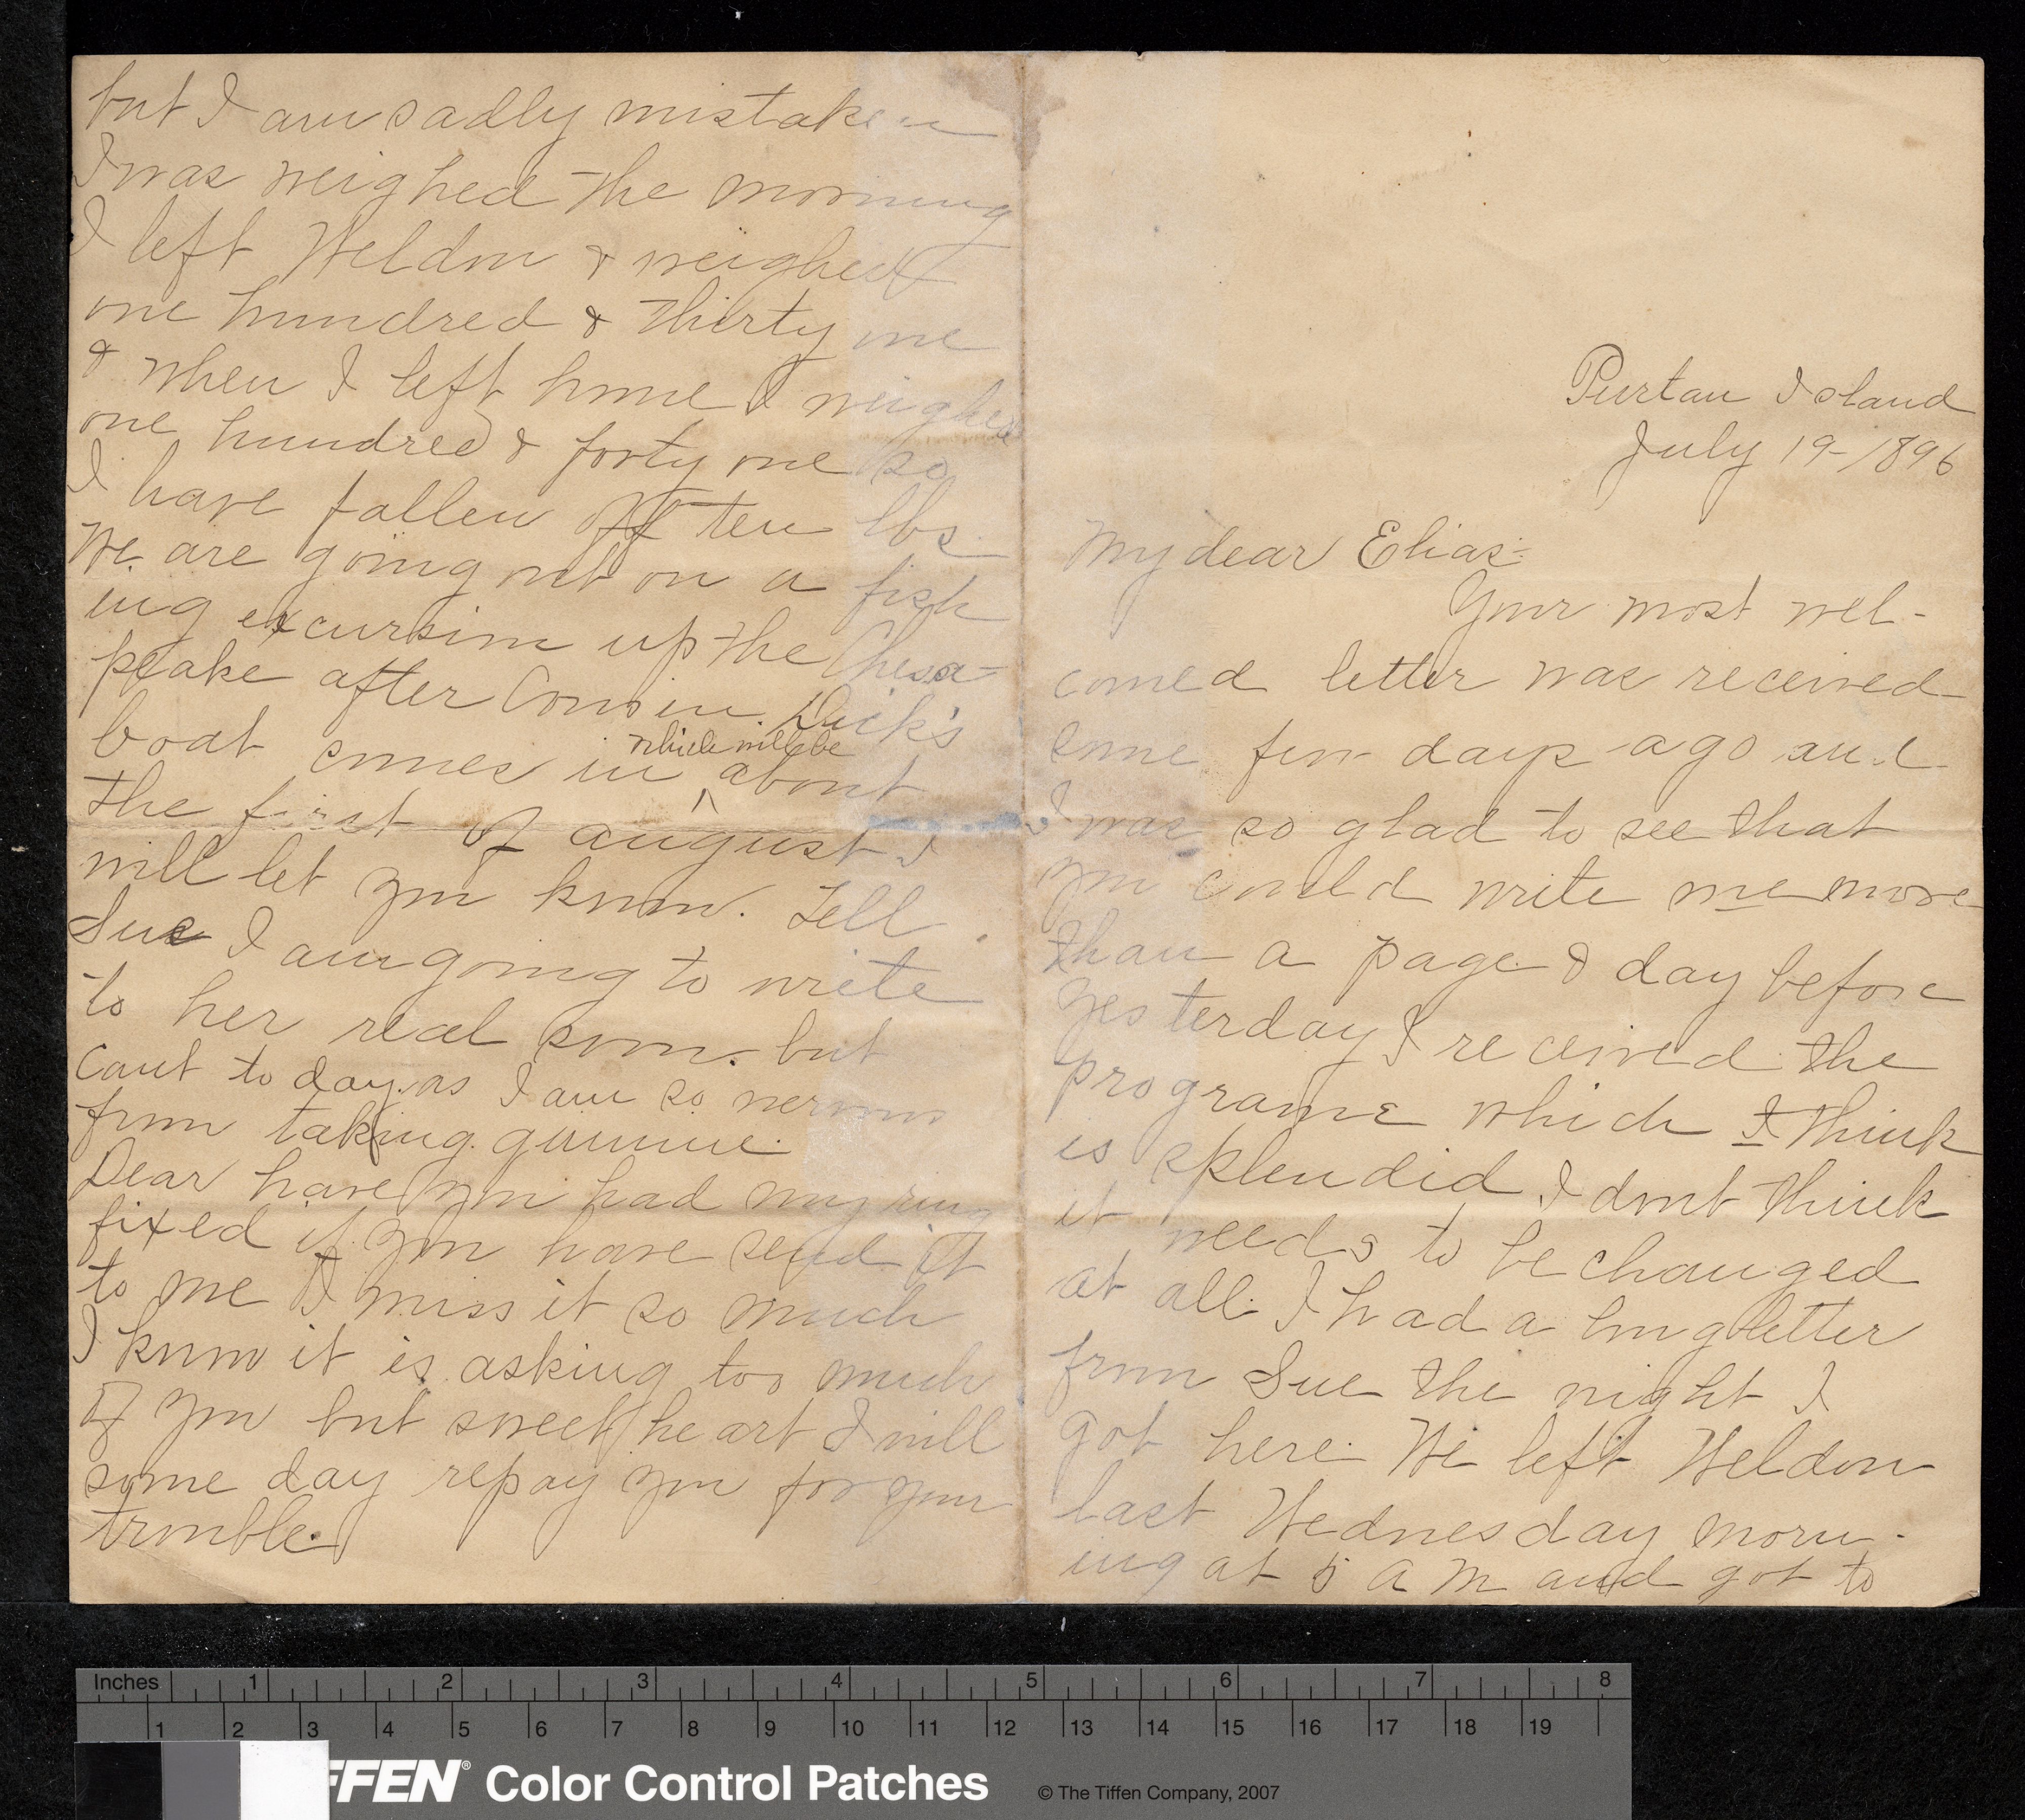 Purtan Island
July 19-1896
My dear Elias:-
Your most wel-
comed letter was received
some few days ago and
I was so glad to see that
you could write me more
than a page & day before
yesterday I received the
programe which I think
is splendid I dont think
it needs to be changed
at all. I had a long letter
from Sue the night I
got here. We left Weldon
last Wednesday morn-
ing at 5 A M and got to
but I am sadly mistaken
I was weighed the morning
I left Weldon & weighed
one hundred & thirty one
& when I left home I weighed
one hundred & forty one so
I have fallen off ten lbs.
We are going out on a fish
ing excursion up the Chesa-
peake after Cousin Dick's
boat comes in which will be about
the first of august I
will let you know. Tell
Sue I am going to write
to her real soon. but
cant to day. as I am so nervous
from taking quinine.
Dear have you had my ring
fixed if you have send it
to me I miss it so much
I know it is asking too much
of you but sweet heart I will
some day repay you for your
trouble.
Inches 1 2 3 4 5 6 7 8
1 2 3 4 5 6 7 8 9 10 11 12 13 14 15 16 17 18 19
FFEN® Color Control Patches © The Tiffen Company, 2007